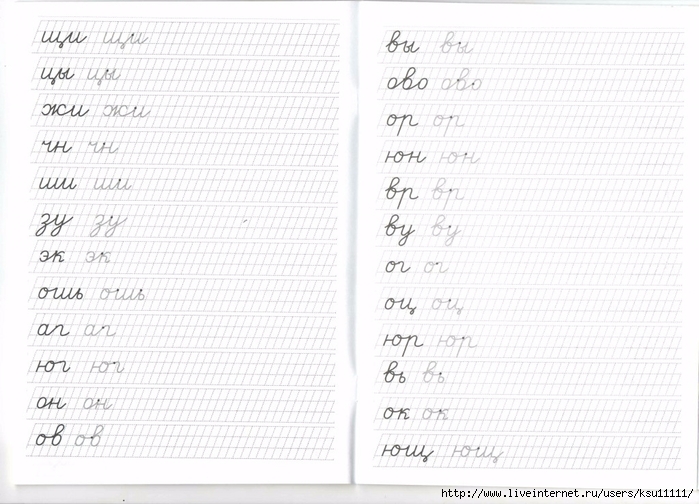 щи щи
цы цы
жи жи
чн чн
ши ши
зу зу
эк эк
ошь ошь
аг аг
юг юг
он он
ов ов
вы вы
ово ово
ор ор
юн юн
вр вр
ву ву
ог ог
оц оц
юр юр
вь вь
ок ок
ющ ющ
http://www.liveinternet.ru/users/ksu11111/